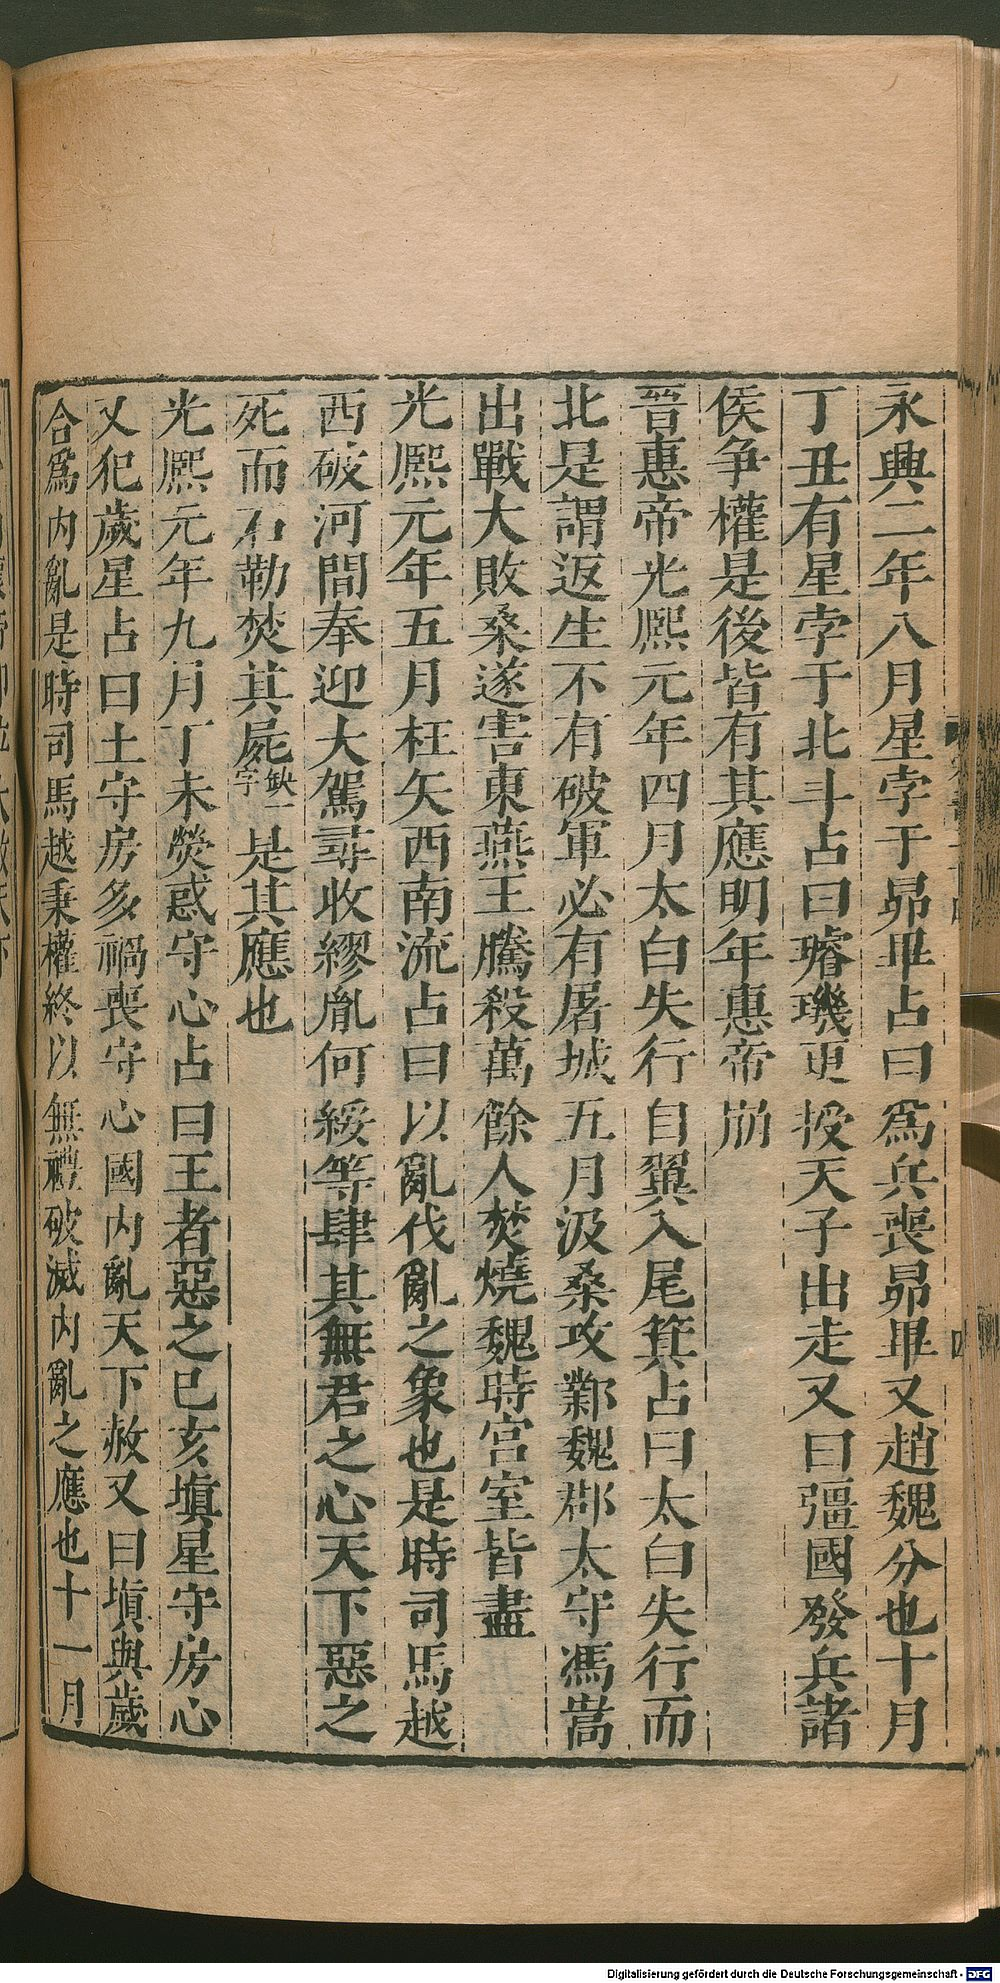 永興二年八月星孛于昴畢占曰爲兵喪昴畢又趙魏分也十月
丁丑有星孛于北斗占曰璿璣更授天子出走又曰彊國發兵諸
侯争權是後皆有其應明年惠帝崩
晉惠帝光熈元年四月太白失行自翼入尾箕占曰太白失行而
北是謂返生不有破軍必有屠城五月汲桑攻鄴魏郡太守馮嵩
出戰大敗桑遂害東燕王騰殺萬餘人焚燒魏時宮室皆盡
光熈元年五月枉矢西南流占曰以亂伐亂之象也是時司馬越
西破河間奉迎大駕尋收繆胤何綏等肆其無君之心天下惡之
死而石勒焚其屍缺一字是其應也
光熈元年九月丁未熒惑守心占曰王者惡之已亥塡星守房心
又犯歲星占曰土守房多禍喪守心國內亂天下赦又曰塡與歲
合爲內亂是時司馬越秉權終以無禮破滅內亂之應也十一月
四
Digitalisierung gefördert durch die Deutsche Forschungsgemeinschaft - DFG